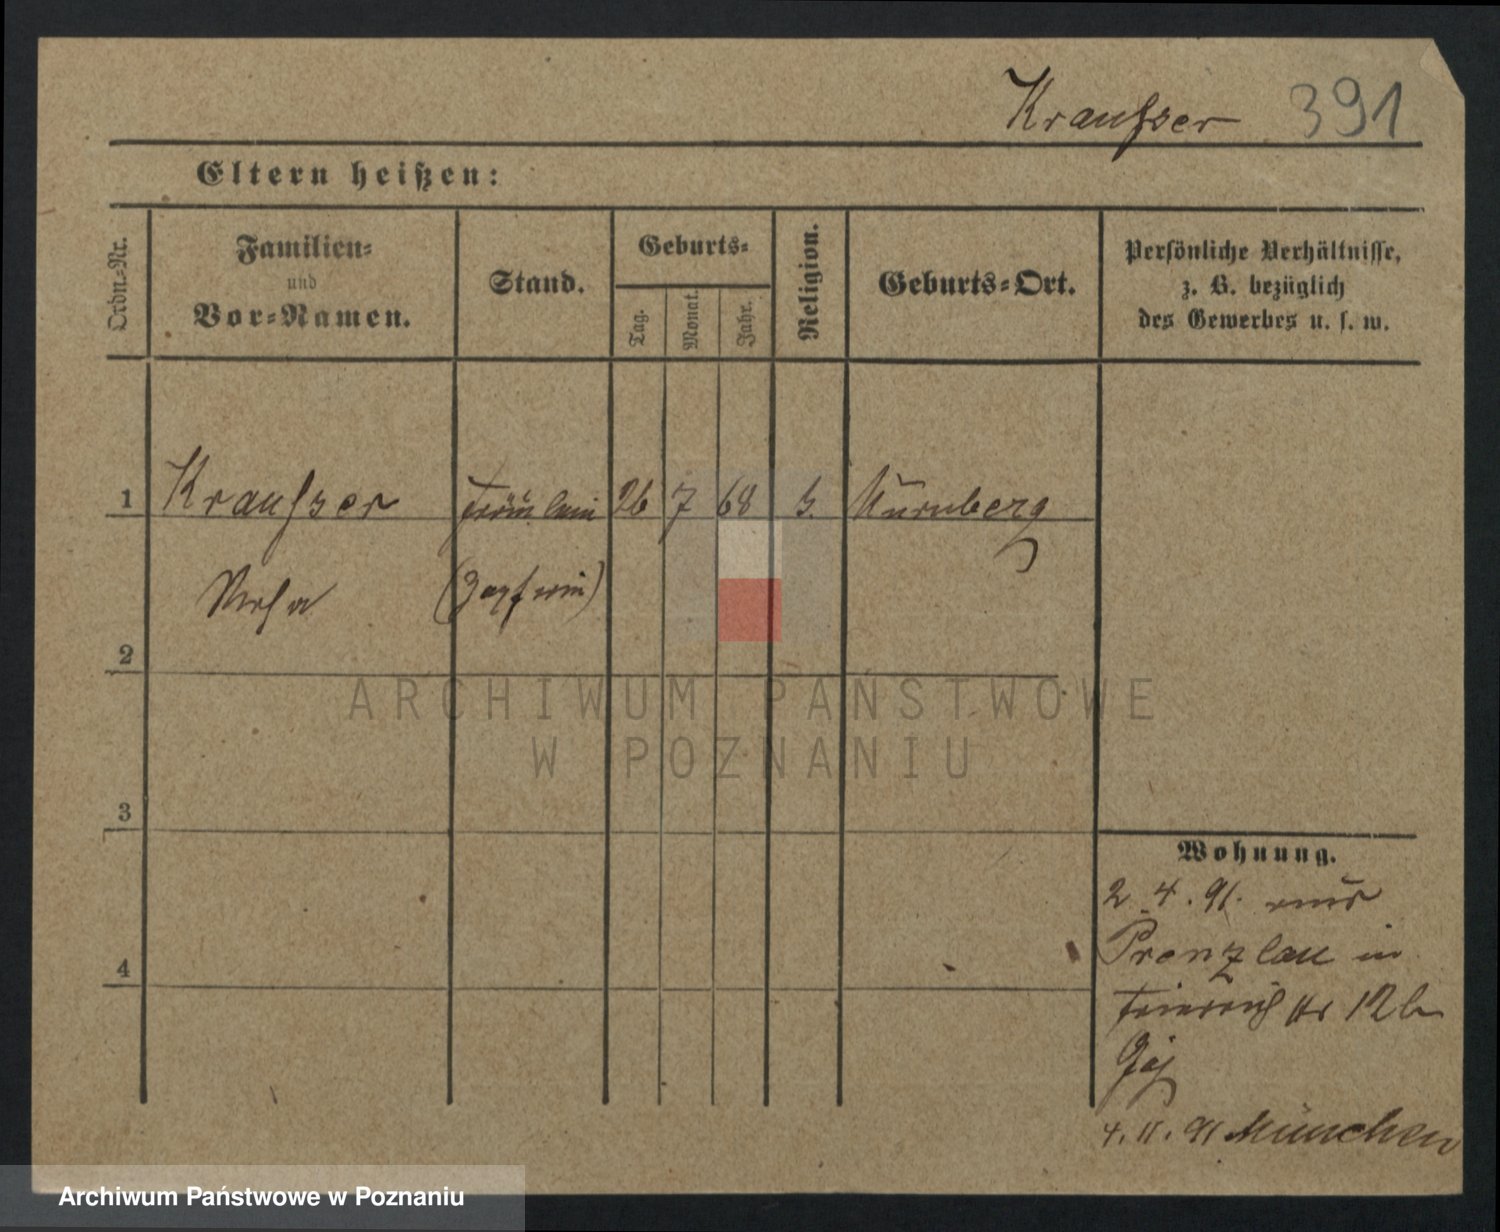 Kraußer 391
Eltern heißen:
Ordn.-Nr.
Familien-
und
Vor-Namen.
Stand.
Geburts-
Tag.
Monat.
Jahr.
Religion.
Geburts-Ort.
Persönliche Verhältnisse,
z. B. bezüglich
des Gewerbes u. s. w.
1 Kraußer Fräulein 26 7 68 Nürnberg
2
3
4
Wohnung.
2. 4. 91. aus
Prenzlau in
12b
4. 11. 91 München
ARCHIWUM PAŃSTWOWE
W POZNANIU
Archiwum Państwowe w Poznaniu